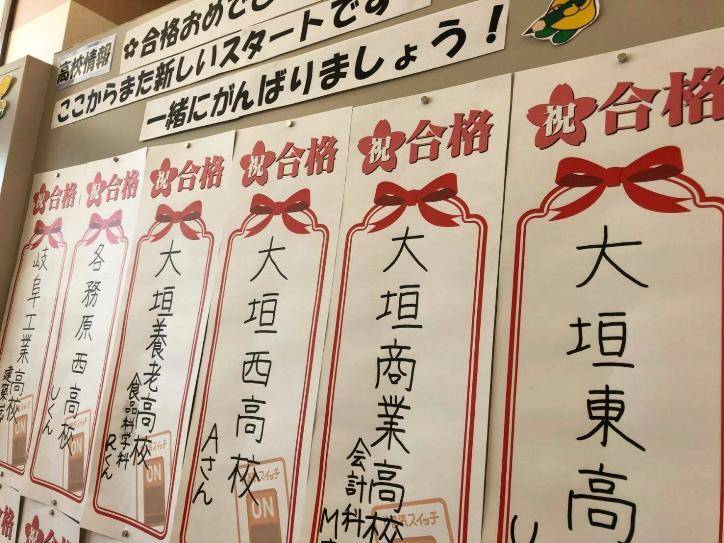 高校情報
合格おめでとう
ここからまた新しいスタートです
一緒にがんばりましょう！
祝合格
大垣東高
祝合格
大垣商業高校
会計科
祝合格
大垣西高校
Aさん
スイッチ
ON
祝合格
大垣養老高校
食品科学科
Rくん
ON
祝合格
各務原西高校
Uくん
祝合格
岐阜工業高校
建築
気スイッチ
祝合格
合格